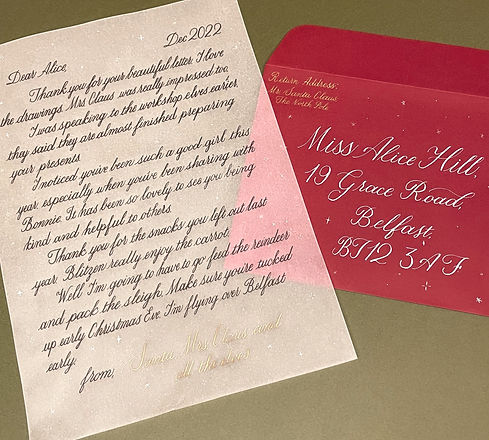 Dec 2022
Dear Alice,
Thank you for your beautiful letter. I love
the drawings. Mrs Claus was really impressed too.
I was speaking to the workshop elves earlier,
they said they are almost finished preparing
your presents.
I noticed you've been such a good girl this
year, especially when you've been sharing with
Bonnie. It has been so lovely to see you being
kind and helpful to others.
Thank you for the snacks you left out last
year. Blitzen really enjoy the carrot.
Well I'm going to have to go feed the reindeer
and pack the sleigh. Make sure you're tucked
up early Christmas Eve. I'm flying over Belfast
early.
from,
Santa, Mrs Claus and
all the elves
Return Address:
Mr Santa Claus
The North Pole
Miss Alice Hill,
19 Grace Road,
Belfast,
BT12 3AF